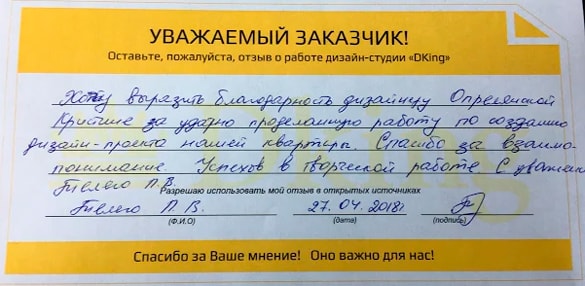 УВАЖАЕМЫЙ ЗАКАЗЧИК!
Оставьте, пожалуйста, отзыв о работе дизайн-студии «DKing»
Хочу выразить благодарность дизайнеру
Кристине за ударно проделанную работу по созданию
дизайн-проекта нашей квартиры. Спасибо за взаимо-
понимание. Успехов в творческой работе С уважен
П.В.
Разрешаю использовать мой отзыв в открытых источниках
П. В. 27.04.2018г
(Ф.И.О) (дата) (подпись)
Спасибо за Ваше мнение! Оно важно для нас!